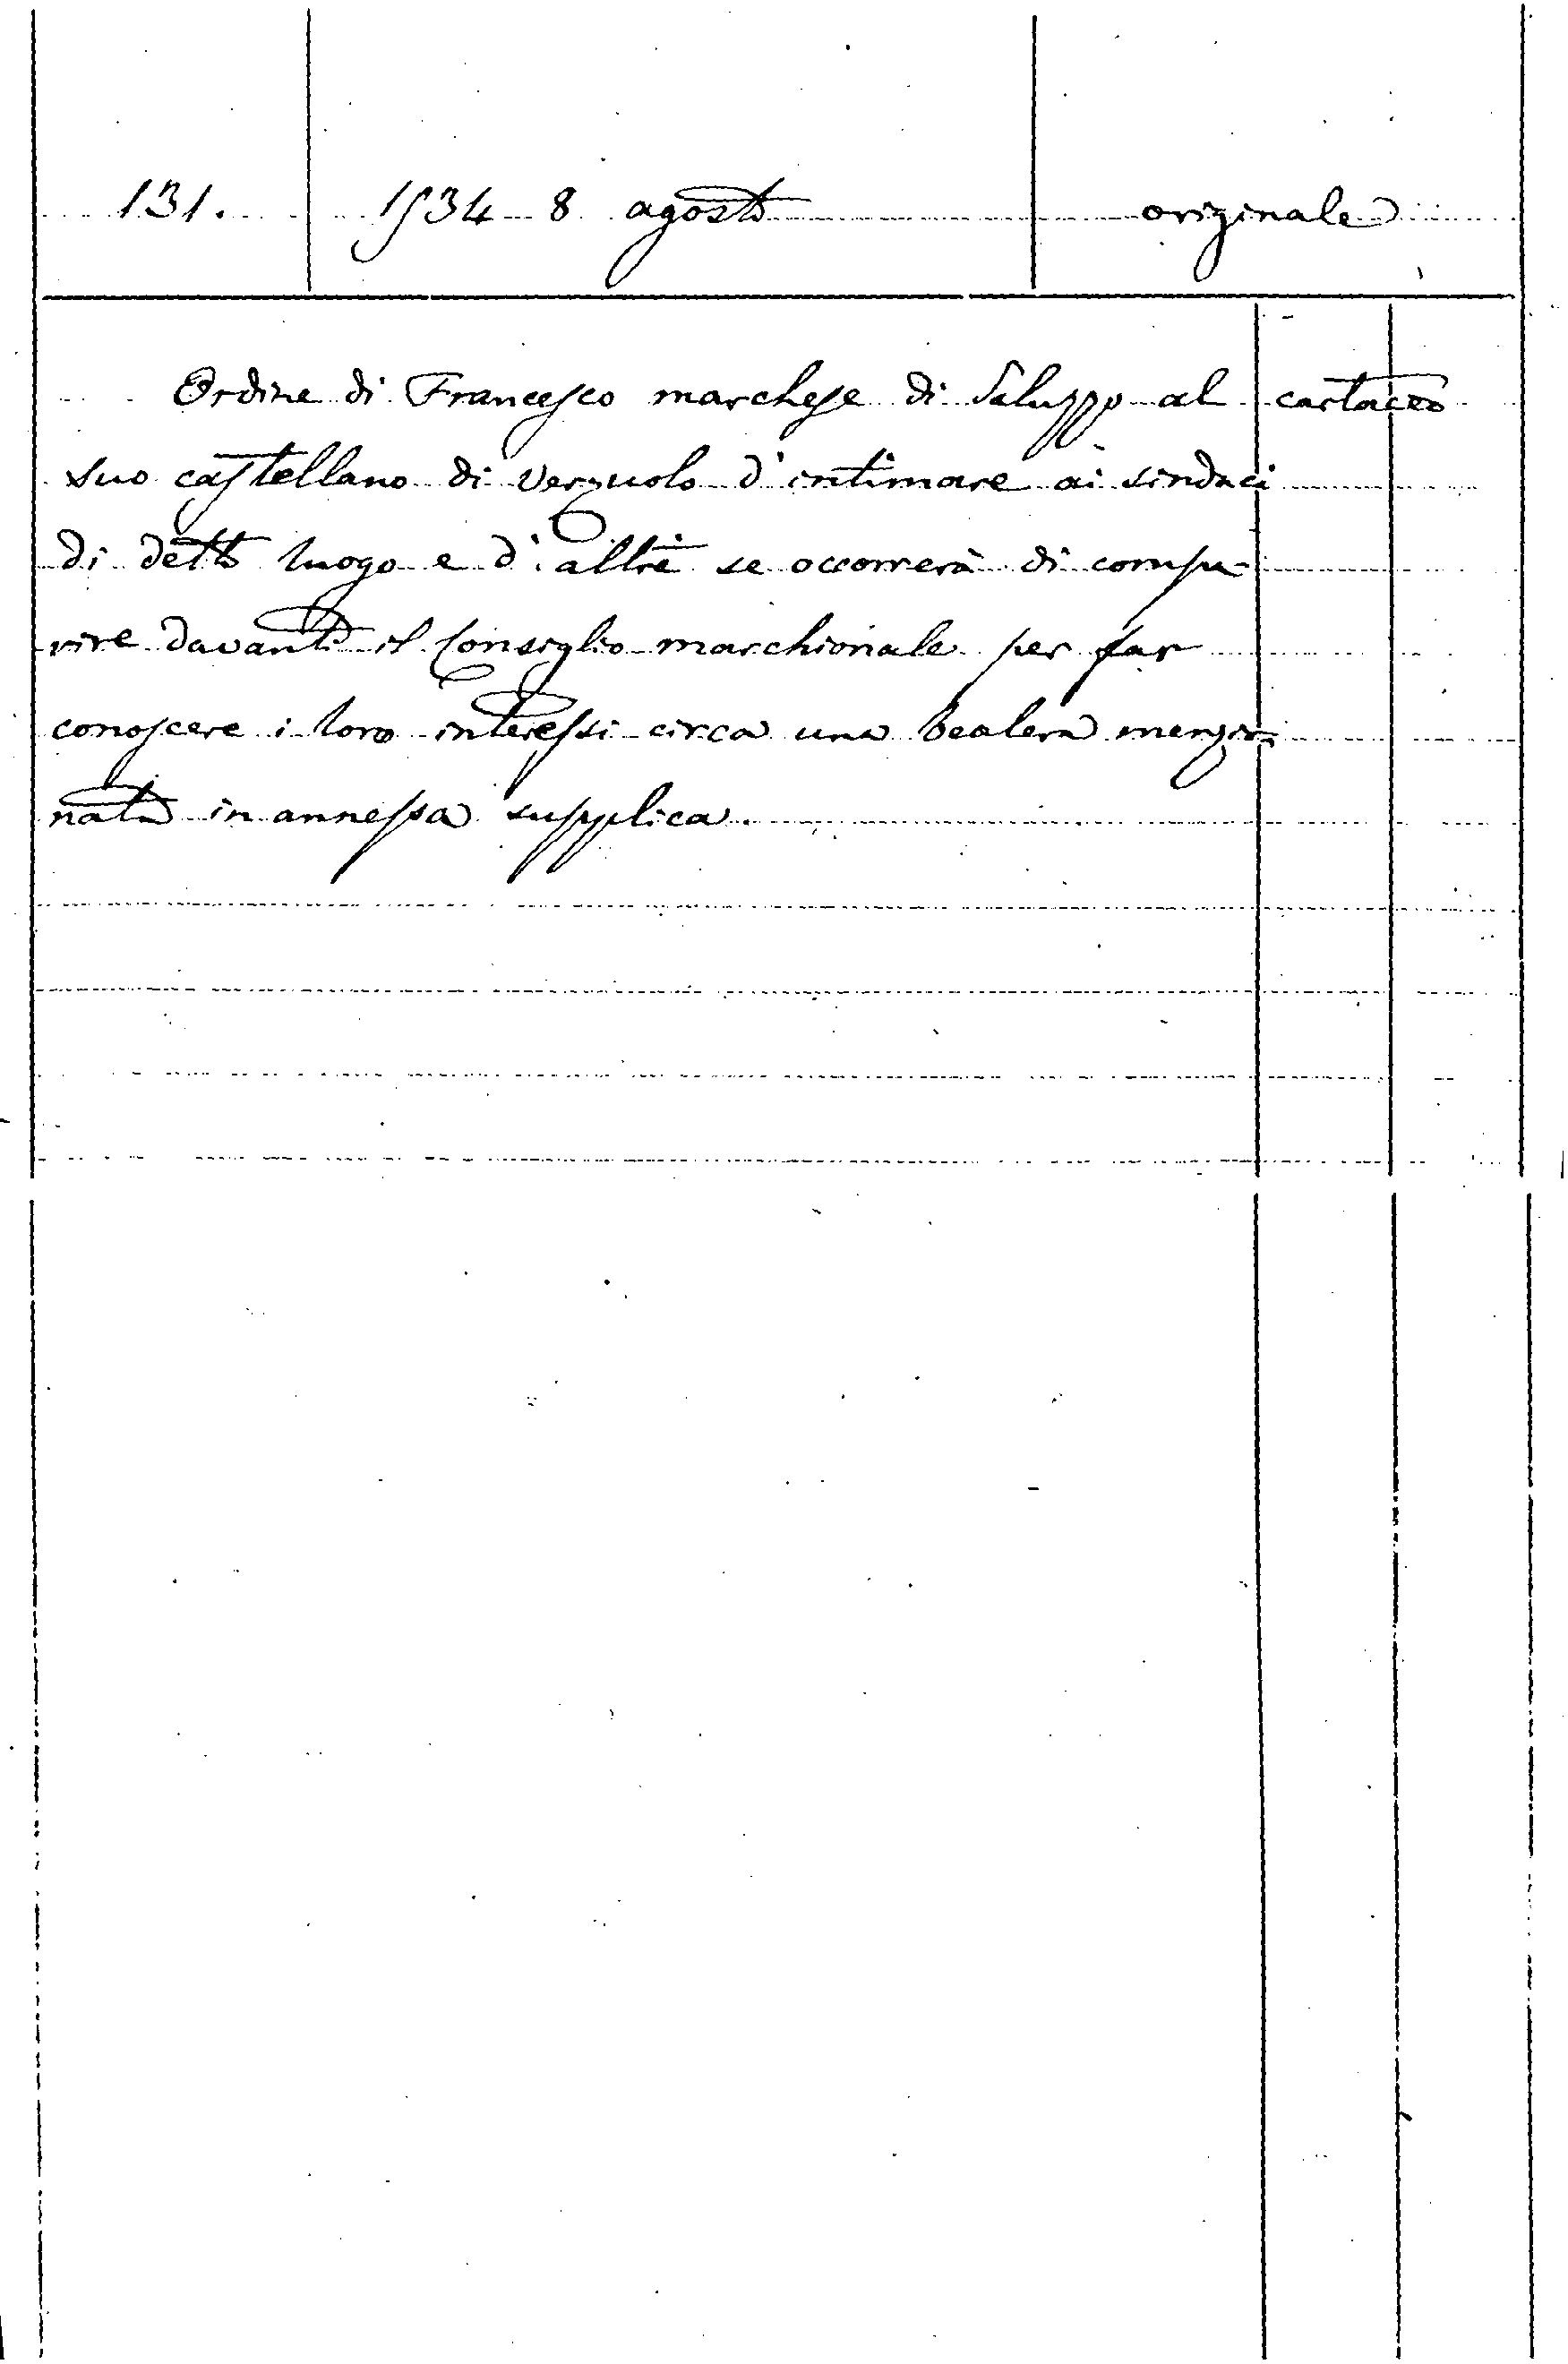 131. 1534 8 agosto originale
Ordine di Francesco marchese di Saluzzo al cartaceo
suo castellano di Verzuolo d'intimare ai sindaci
di detto luogo e d'altri se occorrerà di compa-
rire davanti il Consiglio marchionale per far
conoscere i loro interessi circa una bealera menzio-
nata in annessa supplica.